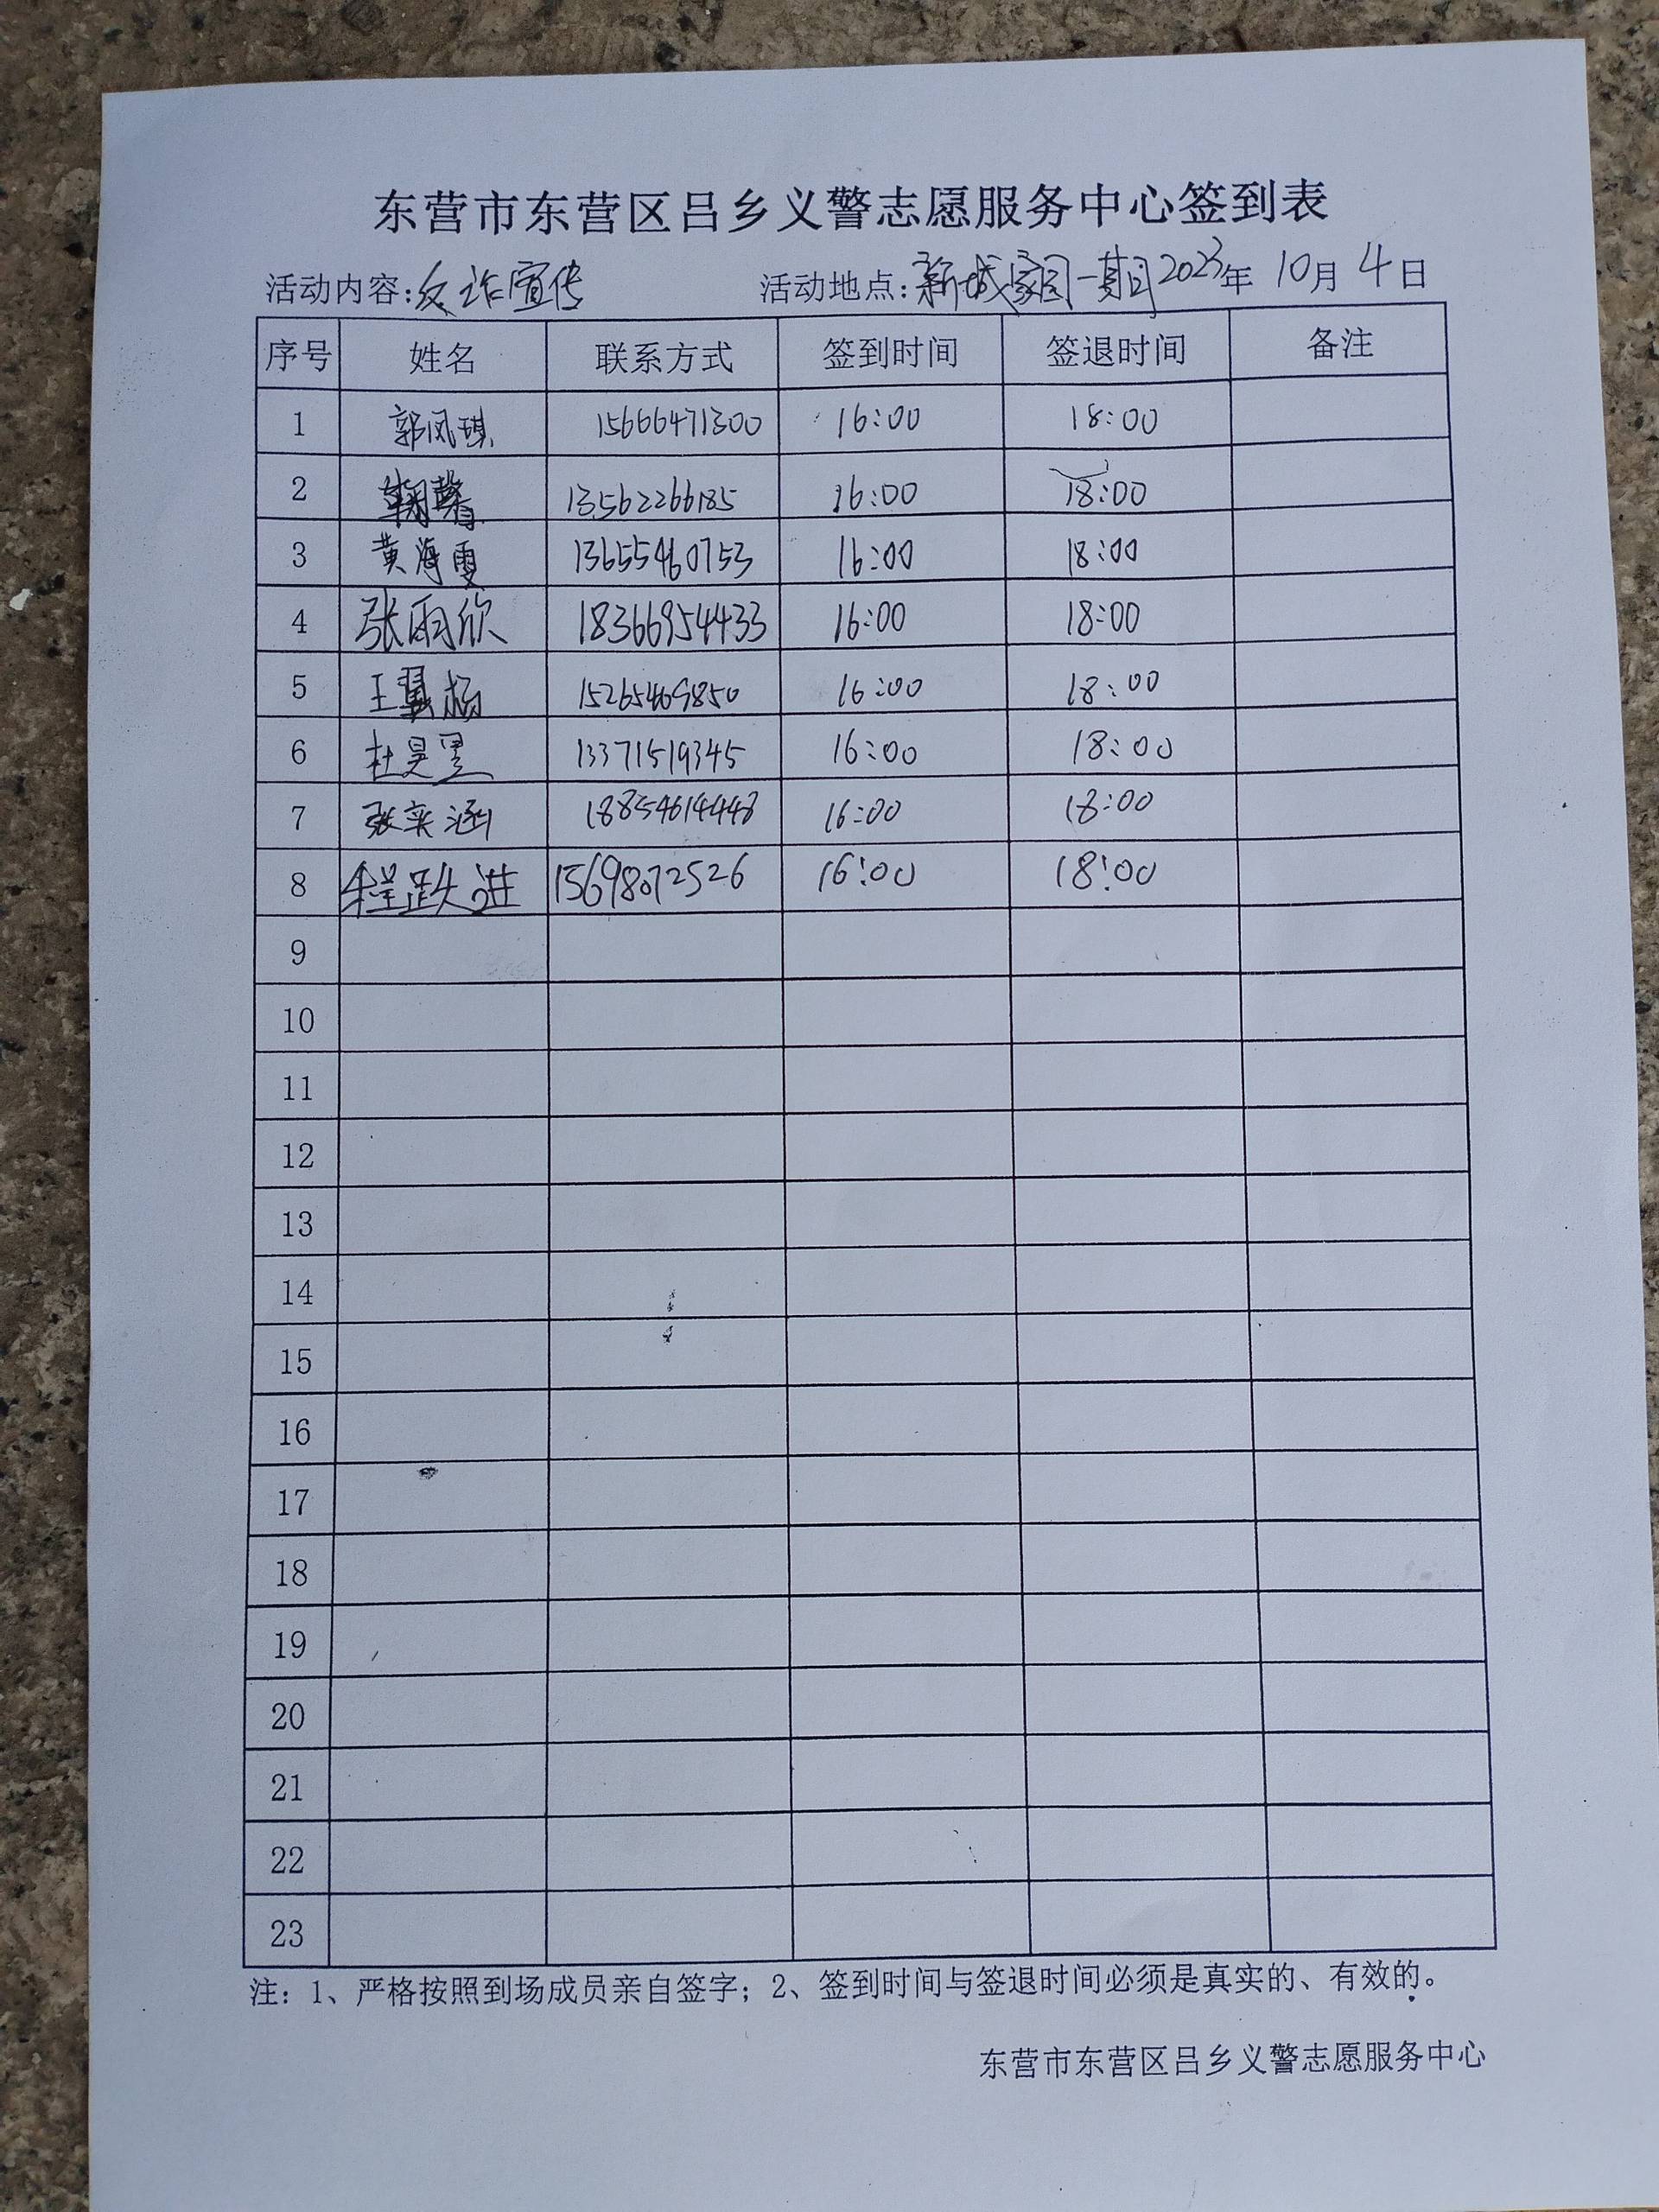 东营市东营区吕乡义警志愿服务中心签到表
活动内容:反诈宣传 活动地点:新城家园一期 2023年 10月 4日
序号 姓名 联系方式 签到时间 签退时间 备注
1 郭凤琪 15666471300 16:00 18:00
2 鞠馨 13562266185 16:00 18:00
3 黄海雯 13655460753 16:00 18:00
4 张雨欣 18366954433 16:00 18:00
5 王翼杨 15265469850 16:00 18:00
6 杜昊 13371519345 16:00 18:00
7 张奕涵 18854614448 16:00 18:00
8 程跃进 15698072526 16:00 18:00
9
10
11
12
13
14
15
16
17
18
19
20
21
22
23
注：1、严格按照到场成员亲自签字；2、签到时间与签退时间必须是真实的、有效的。
东营市东营区吕乡义警志愿服务中心